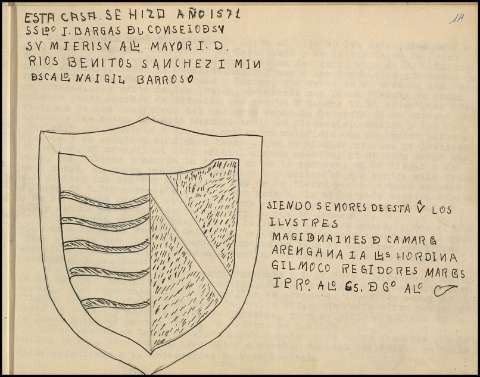 ESTA CASA SE HIZO AÑO 1571
SSLdº I. DARGAS DL CONSEIO DSV
SV MIERISV ALLL MAYOR I. D.
RIOS BENITOS SANCHEZ I MIN
DSCALo NAIGIL BARROSO
SIENDO SEÑORES DE ESTA Vª LOS
ILVSTRES
MAGIDNAINES D CAMARG
ARENGANA IA LLLS HORDINA
GILMOCO REGIDORES MARCS
IPRº. ALo GS. D Gº ALo